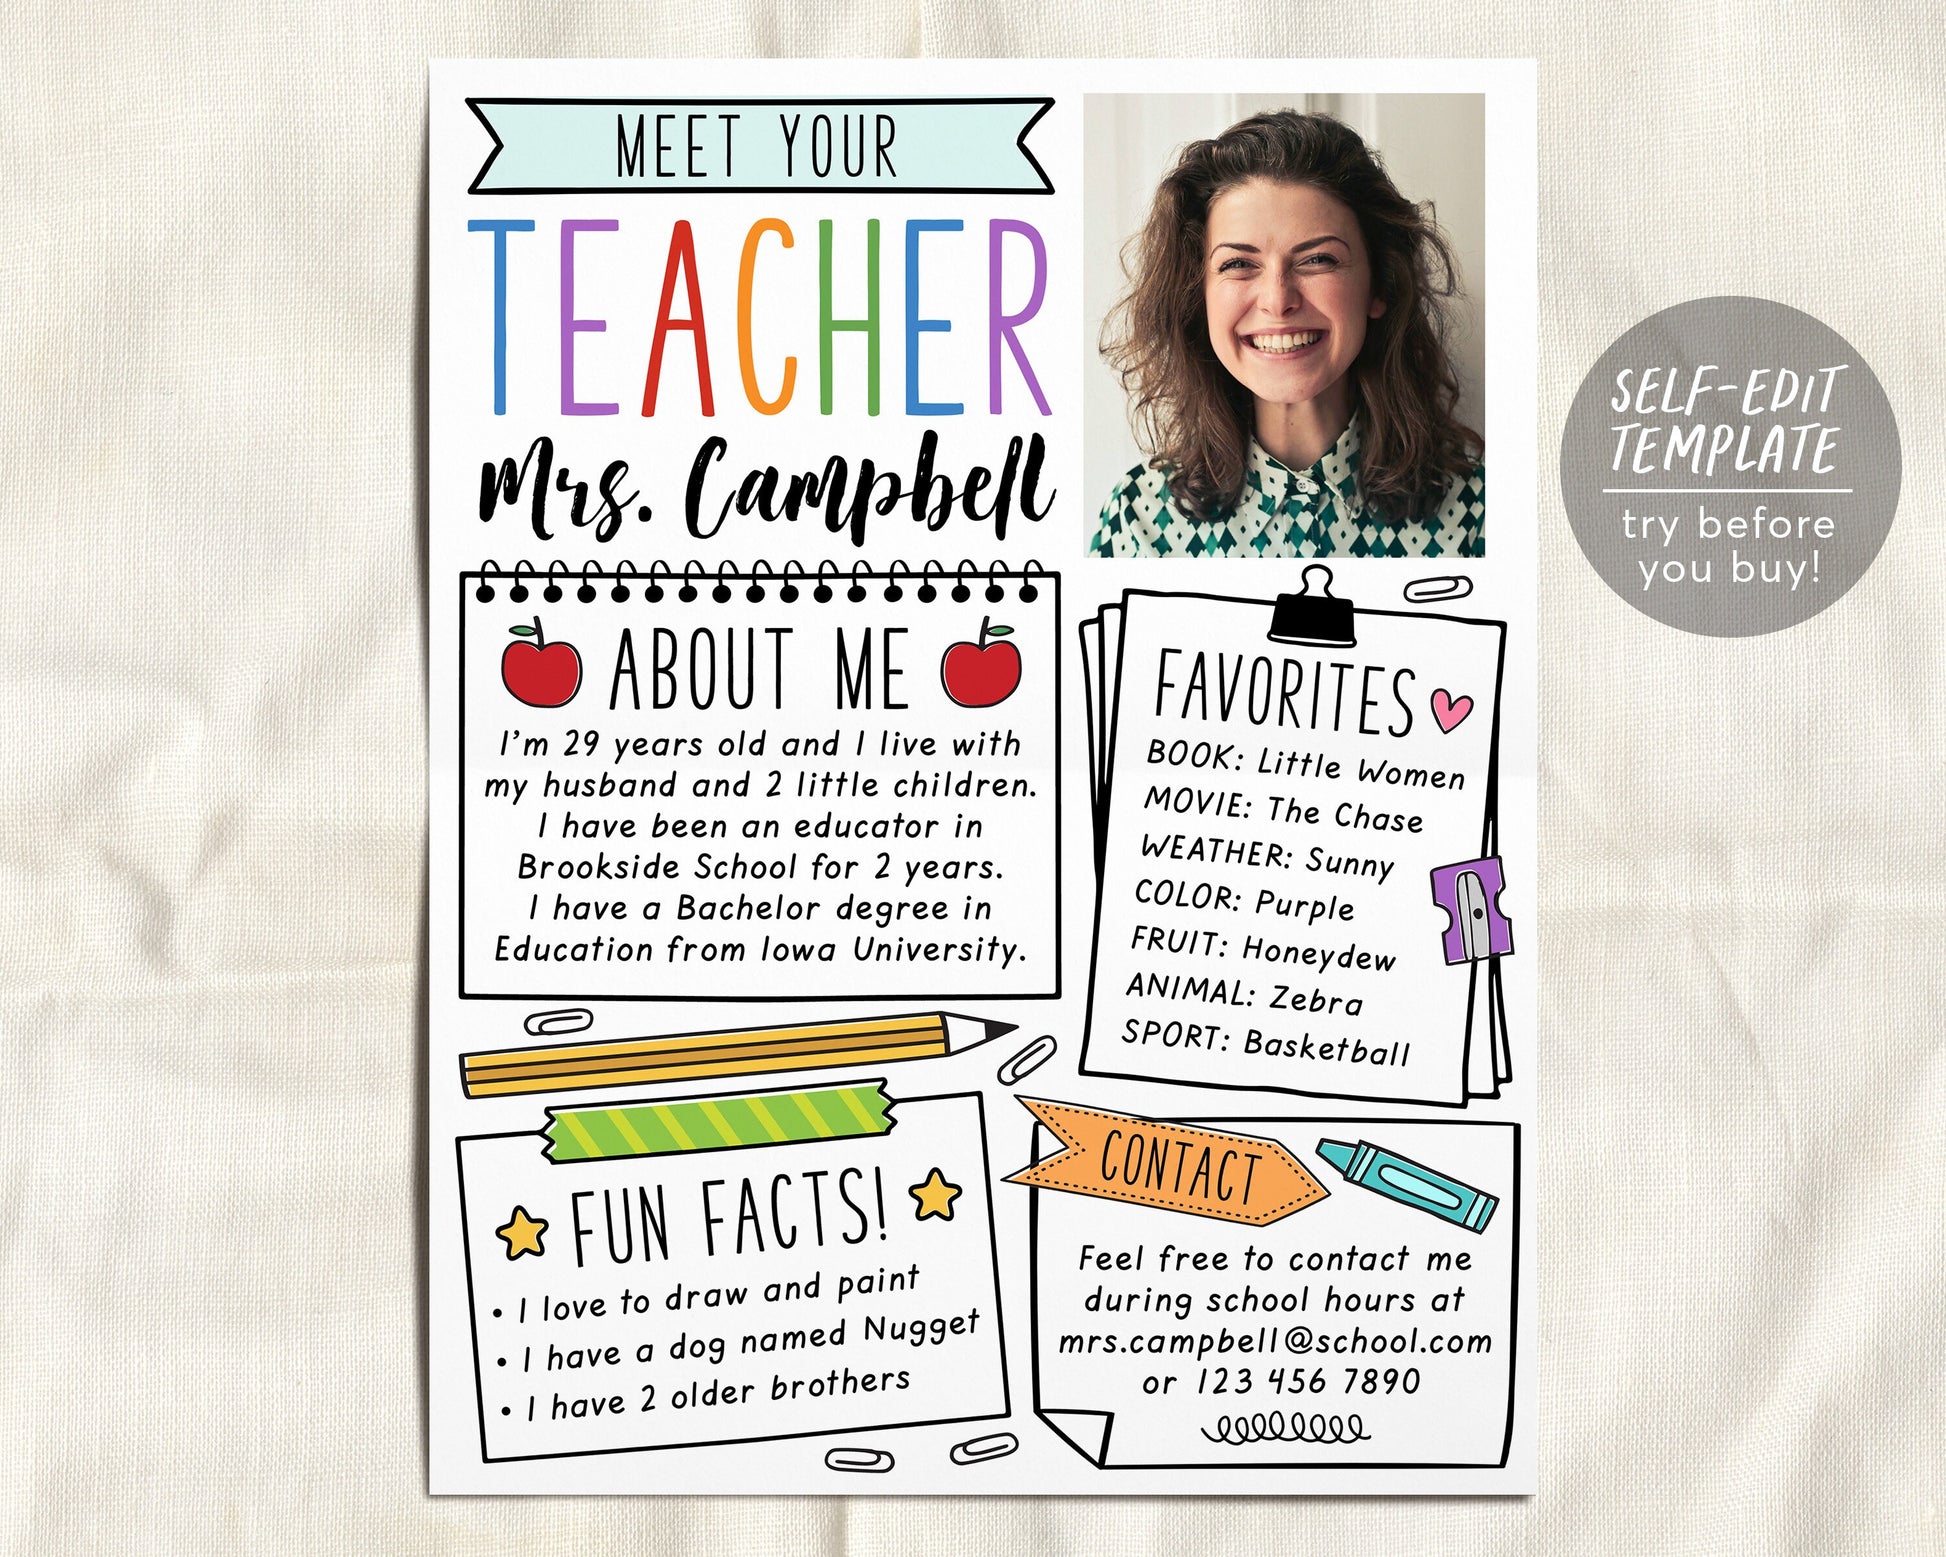 MEET YOUR
TEACHER
Mrs. Campbell
ABOUT ME
I'm 29 years old and I live with
my husband and 2 little children.
I have been an educator in
Brookside School for 2 years.
I have a Bachelor degree in
Education from Iowa University.
FAVORITES
BOOK: Little Women
MOVIE: The Chase
WEATHER: Sunny
COLOR: Purple
FRUIT: Honeydew
ANIMAL: Zebra
SPORT: Basketball
FUN FACTS!
• I love to draw and paint
• I have a dog named Nugget
• I have 2 older brothers
CONTACT
Feel free to contact me
during school hours at
mrs.campbell@school.com
or 123 456 7890
SELF-EDIT
TEMPLATE
try before
you buy!